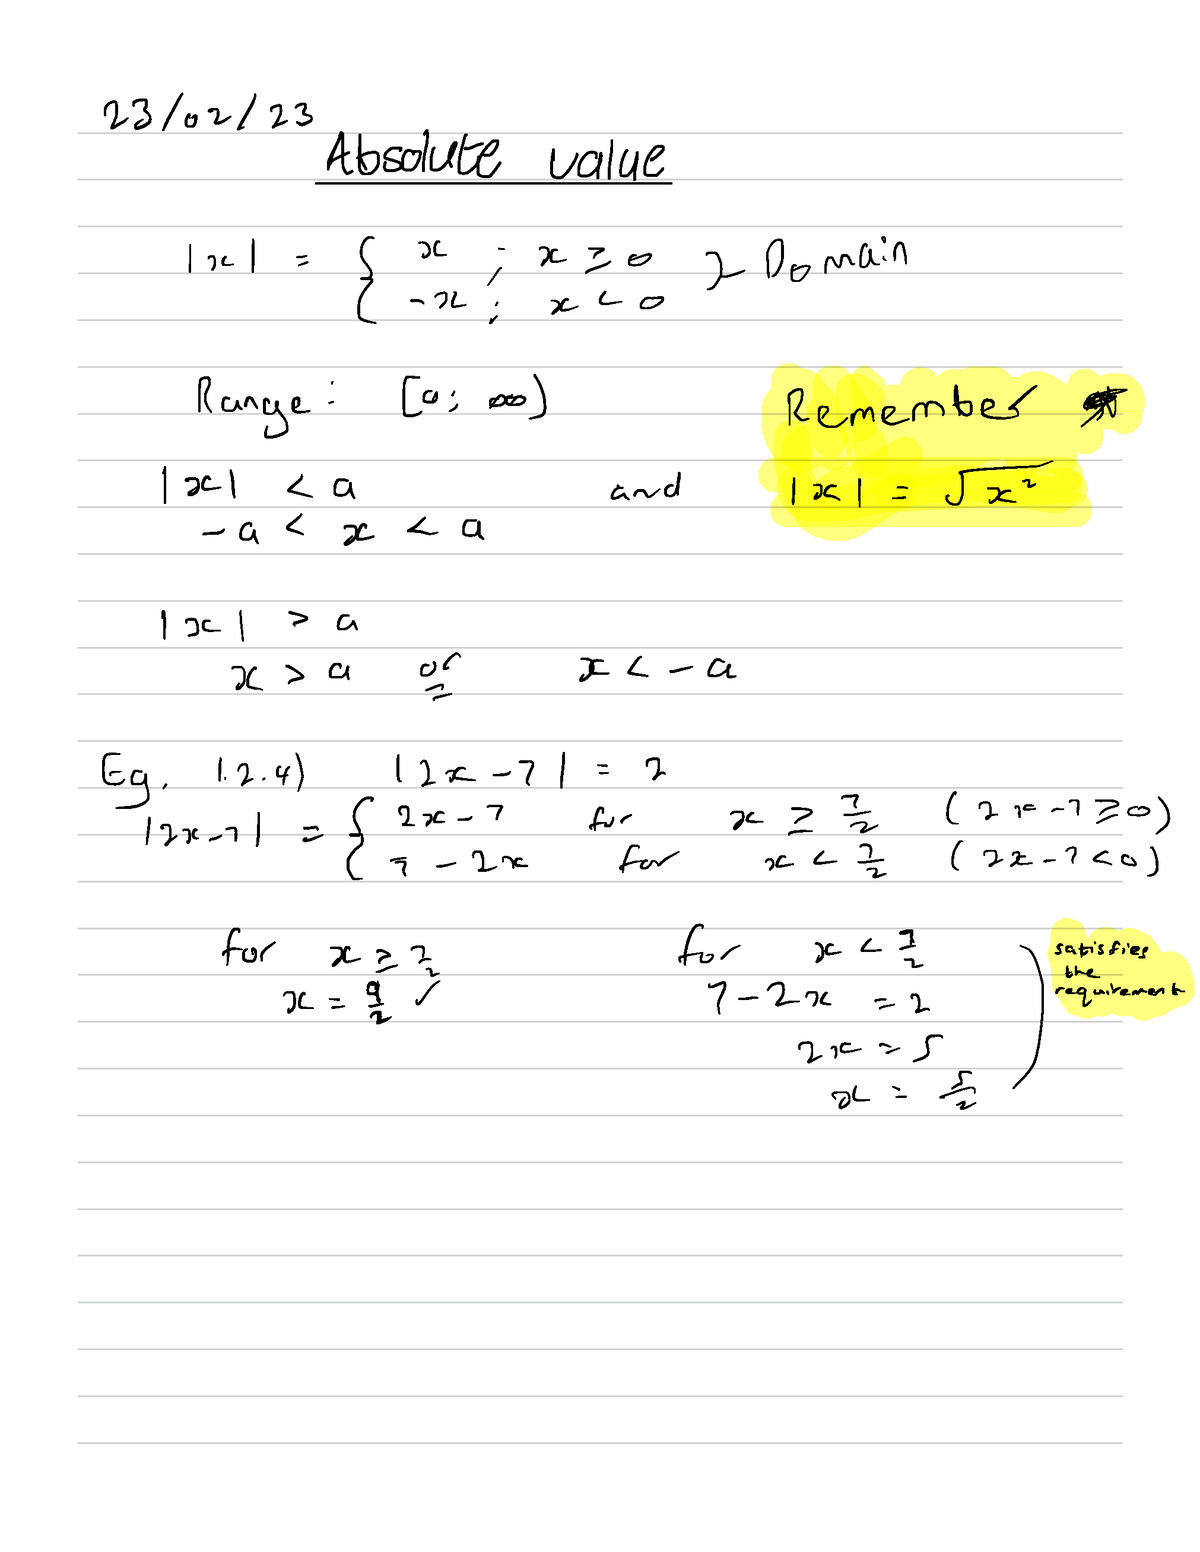 23/02/23
Absolute value
|x| = { x ; x ≥ 0 } Domain
{ -x ; x < 0
Range: [0; ∞)
Remember
|x| < a and |x| = √x²
-a < x < a
|x| > a
x > a or x < -a
Eg. 1.2.4) |2x-7| = 2
|2x-7| = { 2x-7 for x ≥ 7/2 (2x-7≥0)
{ 7-2x for x < 7/2 (2x-7<0)
for x ≥ 7/2
x = 9/2 ✓
for x < 7/2
7-2x = 2
2x = 5
x = 5/2
satisfies
the
requirement